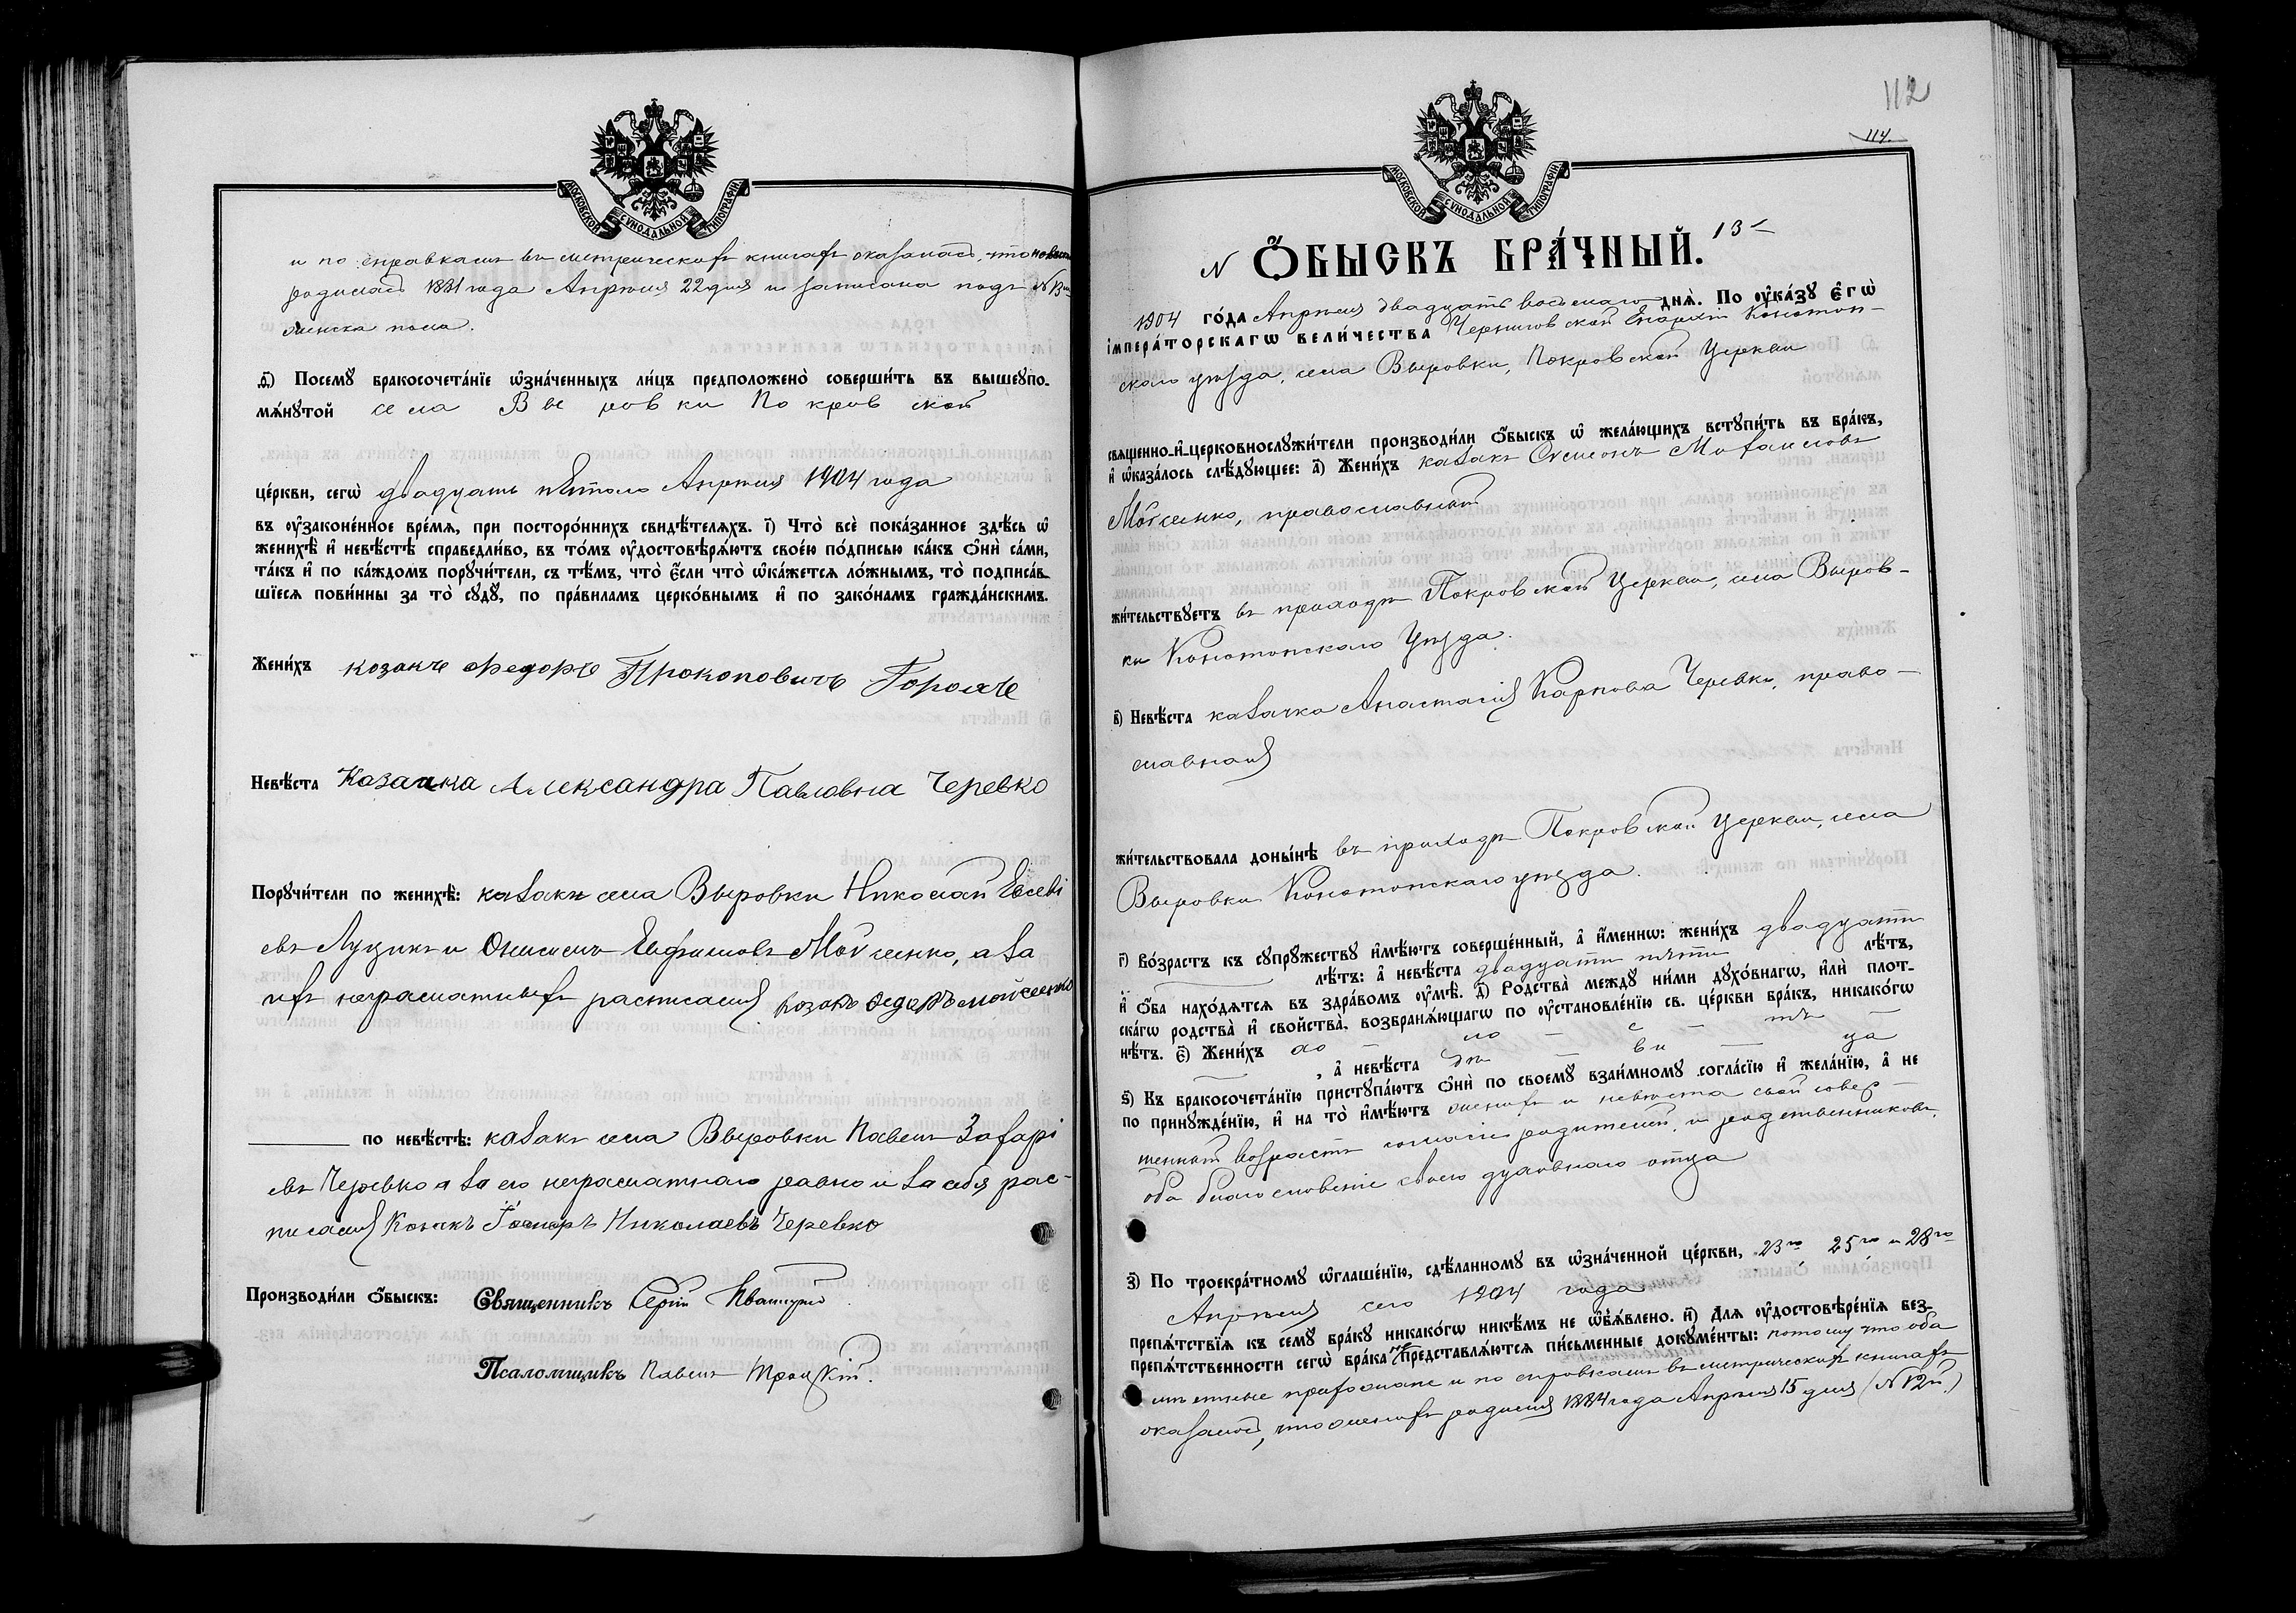 МОСКОВСКОЙ СѴНОДАЛЬНОЙ ТИПОГРАФІИ
и по справкамъ въ метрическихъ книгахъ оказалось, что невеста
родилась 1881 года Апрѣля 22 дня и записана подъ №13мъ
женска пола.
д҃) Посемꙋ бракосочета́нїе ѡ҆зна́ченныхъ ли́цъ предположено̀ соверши́ть въ вышеꙋпо-
мѧ́нꙋтой села Выровки Покровской
це́ркви, сегѡ̀ двадцать пятого Апрѣля 1904 года
въ ᲂу҆законе́нное вре́мѧ, при посторо́ннихъ свидѣ́телѧхъ. і҃) Что̀ всѐ пока́занное здѣ́сь ѡ҆
женихѣ̀ и҆ невѣ́стѣ справедли́во, въ то́мъ ᲂу҆достовѣрѧ́ютъ свое́ю по́дписью ка́къ ѻ҆нѝ са́ми,
та́къ и҆ по ка́ждомъ порꙋчи́тели, съ тѣ́мъ, что̀ є҆́сли что̀ ѡ҆ка́жетсѧ ло́жнымъ, то̀ подписа́в-
шїесѧ пови́нны за то̀ сꙋдꙋ̀, по пра́виламъ церко́внымъ и҆ по зако́намъ гражда́нскимъ.
Жени́хъ козакъ Федоръ Прокоповичъ
Невѣ́ста Козачка Александра Павловна Черевко
Порꙋчи́тели по женихѣ̀: казаки села Выровки Николай Евсеві
евъ Луцикъ и Онисимъ Евфимовъ Мойсенко, а за
ихъ неграматныхъ расписался козакъ Федоръ мойсенко
по невѣ́стѣ: казакъ села Выровки Павелъ Захарі
евъ Черевко а за его неграматнаго равно и за себя рас-
писался Козакъ Николаевъ Черевко
Производи́ли ѻ҆́быскъ: Священникъ
Псаломщикъ Павелъ Троицкій.
112
114.
МОСКОВСКОЙ СѴНОДАЛЬНОЙ ТИПОГРАФІИ
N Ѻ҆́БЫСКЪ БРА́ЧНЫЙ. 13
1904 го́да Апрѣля двадцать восьмаго днѧ̀. По ᲂу҆ка́зꙋ Є҆гѡ̀
і҆мпера́торскагѡ вели́чества Черниговской Епархіи Конотоп-
скаго уѣзда, села Выровки, Покровской Церкви
свѧще́нно-и҆-церковнослꙋжи́тели производи́ли ѻ҆́быскъ ѡ҆ жела́ющихъ встꙋпи́ть въ бра́къ,
и҆ ѡ҆каза́лось слѣ́дꙋющее: а҃) Жени́хъ казакъ Михаиловъ
Мойсенко, православный
жи́тельствꙋетъ въ приходѣ Покровской Церкви, села Выров-
ки Конотопскаго Уѣзда.
в҃) Невѣ́ста казачка Анастасія Карпова Черевко, право-
славная
жи́тельствовала доны́нѣ въ приходѣ Покровской Церкви, села
Выровки Конотопскаго уѣзда.
г҃) Во́зрастъ къ сꙋпрꙋ́жествꙋ и҆мѣ́ютъ соверше́нный, а҆ и҆́меннѡ: жени́хъ двадцати
лѣ́тъ: а҆ невѣ́ста двадцати пяти лѣ́тъ,
и҆ ѻ҆́ба нахо́дѧтсѧ въ здра́вомъ ᲂу҆мѣ̀. д҃) Родства̀ междꙋ̀ ни́ми дꙋхо́внагѡ, и҆лѝ плот-
ска́гѡ родства̀ и҆ сво́йства̀, возбранѧ́ющагѡ по ᲂу҆становле́нїю св. це́ркви бра́къ, никако́гѡ
нѣ́тъ. є҃) Жени́хъ хо — ло — с — тъ —
, а҆ невѣ́ста дѣ — ви — ца
ѕ҃) Къ бракосочета́нїю пристꙋпа́ютъ ѻ҆нѝ по своемꙋ̀ взаи́мномꙋ согла́сїю и҆ жела́нїю, а҆ не
по принꙋжде́нїю, и҆ на то̀ и҆мѣ́ютъ женихъ и невѣста свой совер-
шенный возрастъ согласіе родителей, и родственниковъ,
оба благословеніе своего духовнаго отца
з҃) По троекра́тномꙋ ѡ҆глаше́нїю, сдѣ́ланномꙋ въ ѡ҆зна́ченной це́ркви, 23го 25го и 28го
Апрѣля сего 1904 года
препѧ́тствїѧ къ семꙋ̀ бра́кꙋ никако́гѡ никѣ́мъ не ѡ҆б̾ѧ́влено. и҃) Длѧ ᲂу҆достовѣре́нїѧ без-
препѧ́тственности сегѡ̀ бра́ка не предста́влѧютсѧ пи́сьменные докꙋме́нты: потому что оба
мѣстные прихожане и по справкамъ въ метрическихъ книгахъ
оказалось, что женихъ родился 1884 года Апрѣля 15 дня (№ 12й.)